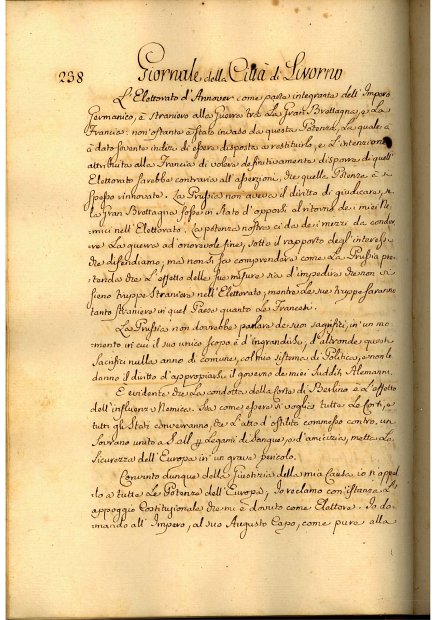 238 Giornale della Città di Livorno
L'Elettorato d'Annover come parte integrante dell'Impero
Germanico, è straniero alla Guerra tra La Gran Brettagna, e La
Francia: non'ostante è stato invaso da questa Potenza, La quale à
à dato sovente indizi di essere disposta a restituirlo, e L'intenzione
attribuita alla Francia di volere definitivamente disporre di quell'
Elettorato sarebbe contraria all'asserzioni, che quella Potenza à
spesso rinnovate. La Prussia non aveva il diritto di giudicare, se
La gran Brettagna fosse in Stato d'opporsi al ritorno de i miei Ne-
mici nell'Elettorato. La potenza nostra ci da dei mezzi da condur-
re La guerra ad onorevole fine, sotto il rapporto degl'interessi
che difendiamo; ma non si sa comprendere come La Prussia pre-
tenda che L'effetto delle sue misure sia d'impedire che non vi
sieno truppe Straniere nell'Elettorato, mentre Le sue truppe saranno
tanto straniere in quel Paese quanto Le Francesi.
La Prussia non dovrebbe parlare de suoi sagrifizj, in un mo-
mento in cui il suo unico scopo è d'ingrandirsi, d'altronde questi
Sacrifizj nulla anno di comune, col mio sistema di Politica, e non le
danno il diritto d'appropiarsi il governo de miei Sudditi Alemanni.
E evidente che La condotta della Corte di Berlino è L'effetto
dell'influenza Nemica. Sia come esser si voglia tutte Le Corti, e
tutti gli Stati converranno, che L'atto d'ostilità commesso contro, un
Sovrano unito a S. M. per Legami di Sangue, e d'amicizia, mette La
Sicurezza dell'Europa in un grave pericolo.
Convinto dunque della Giustizia della mia Causa io n'appel-
lo a tutte Le Potenze dell'Europa; Io reclamo con'istanza L'
appoggio Costituzionale che mi è dovuto come Elettore. Io do-
mando all'Impero, al suo Augusto Capo, come pure alla